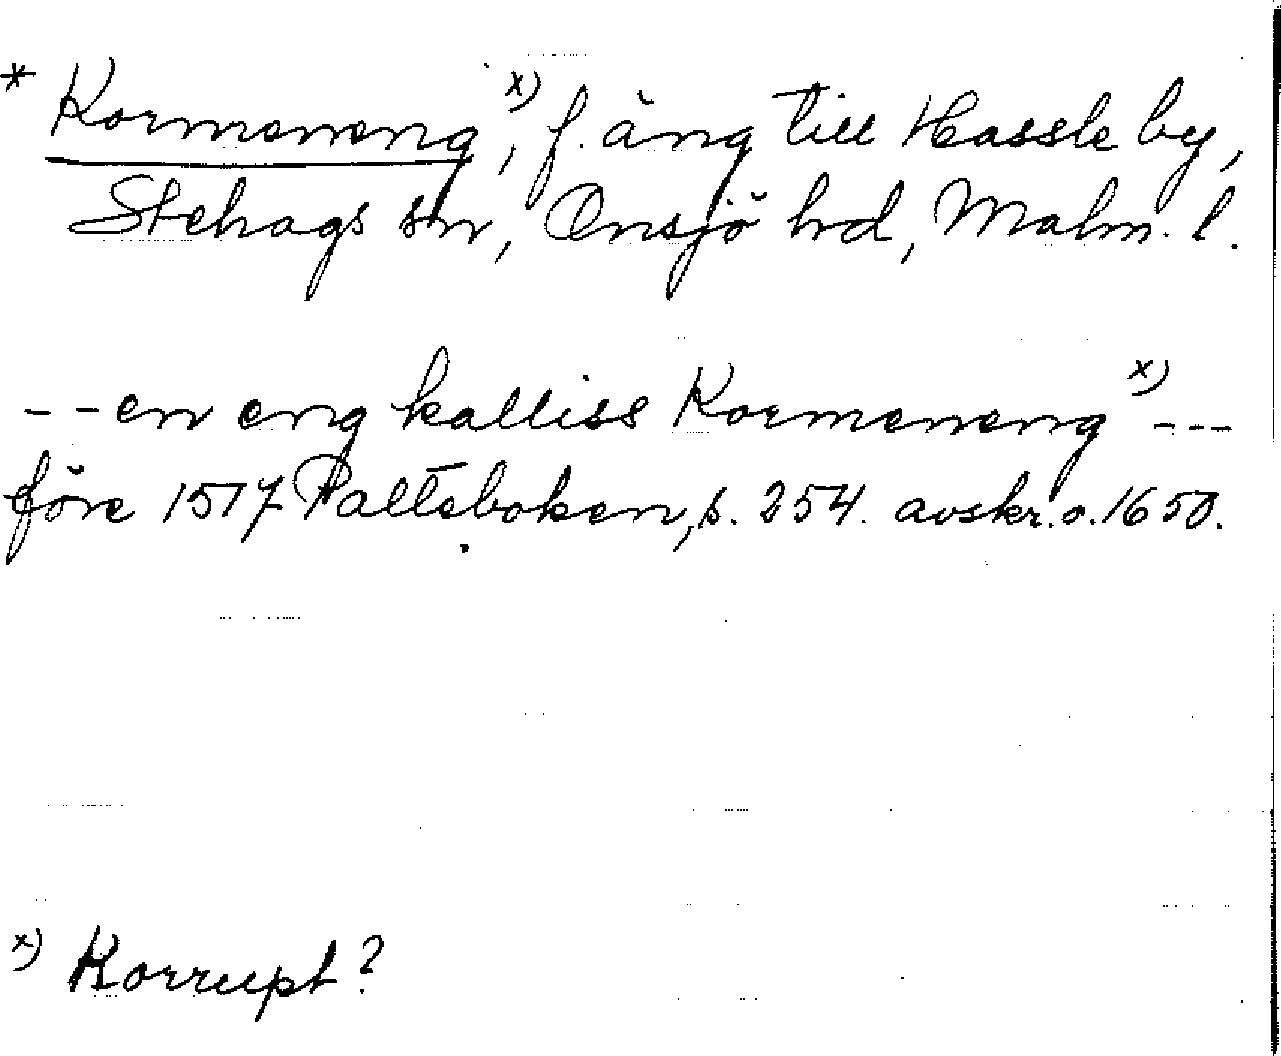 * Kormeneng x), f. äng till Hassle by,
Stehags sn, Onsjö hd, Malm. l.
-- en eng kalliss Kormeneng x) ---
före 1517 Palteboken, s. 254. avskr. o. 1650.
x) Korrupt?